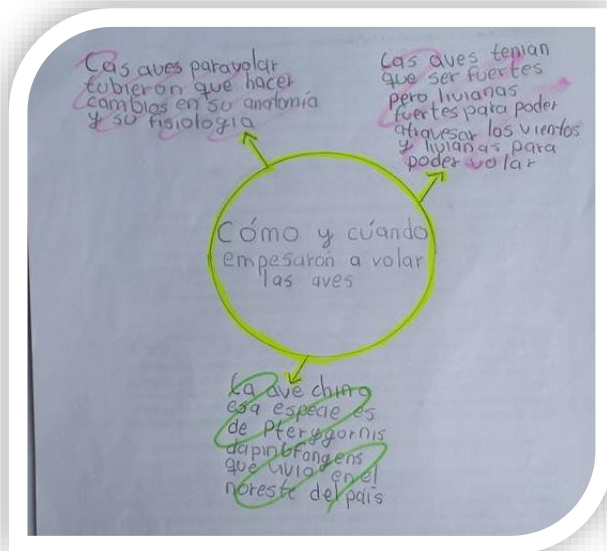 Las aves para volar
tubieron que hacer
cambios en su anatomía
y su fisiología
Las aves tenian
que ser fuertes
pero livianas
fuertes para poder
atravesar los vientos
y livianas para
poder volar
Cómo y cúando
empesaron a volar
las aves
La ave china
esa especie es
de Pterygornis
que vivio en el
noreste del país